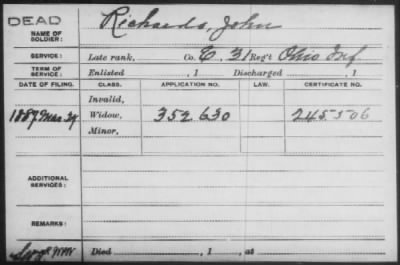 DEAD
NAME OF SOLDIER: Richards, John
SERVICE: Late rank, Co. C, 31 Reg't Ohio Inf
TERM OF SERVICE: Enlisted , 1 Discharged , 1
DATE OF FILING. CLASS. APPLICATION NO. LAW. CERTIFICATE NO.
Invalid,
1887 Mar 29 Widow, 352.630 245506
Minor,
ADDITIONAL SERVICES:
REMARKS:
Died , 1 , at